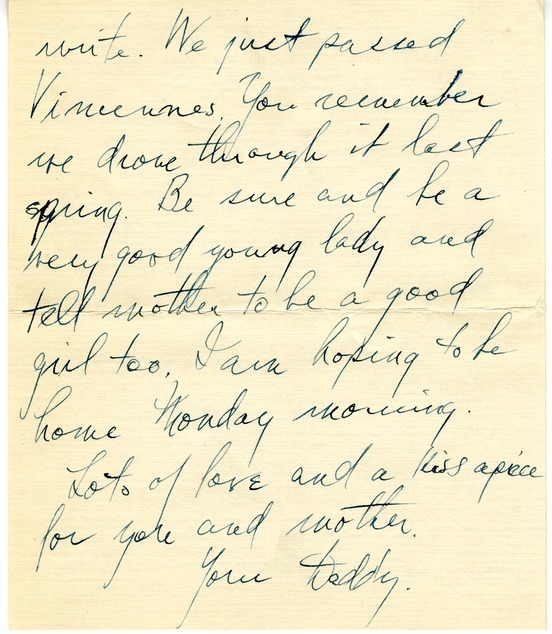 write. We just passed
Vincennes. You remember
we drove through it last
spring. Be sure and be a
very good young lady and
tell mother to be a good
girl too. I am hoping to be
home Monday morning.
Lots of love and a kiss apiece
for you and mother.
Your Daddy.